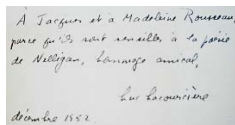 À Jacques et à Madeleine Rousseau,
parce qu'ils sont sensibles à la poésie
de Nelligan, hommage amical,
Luc Lacourcière
décembre 1952